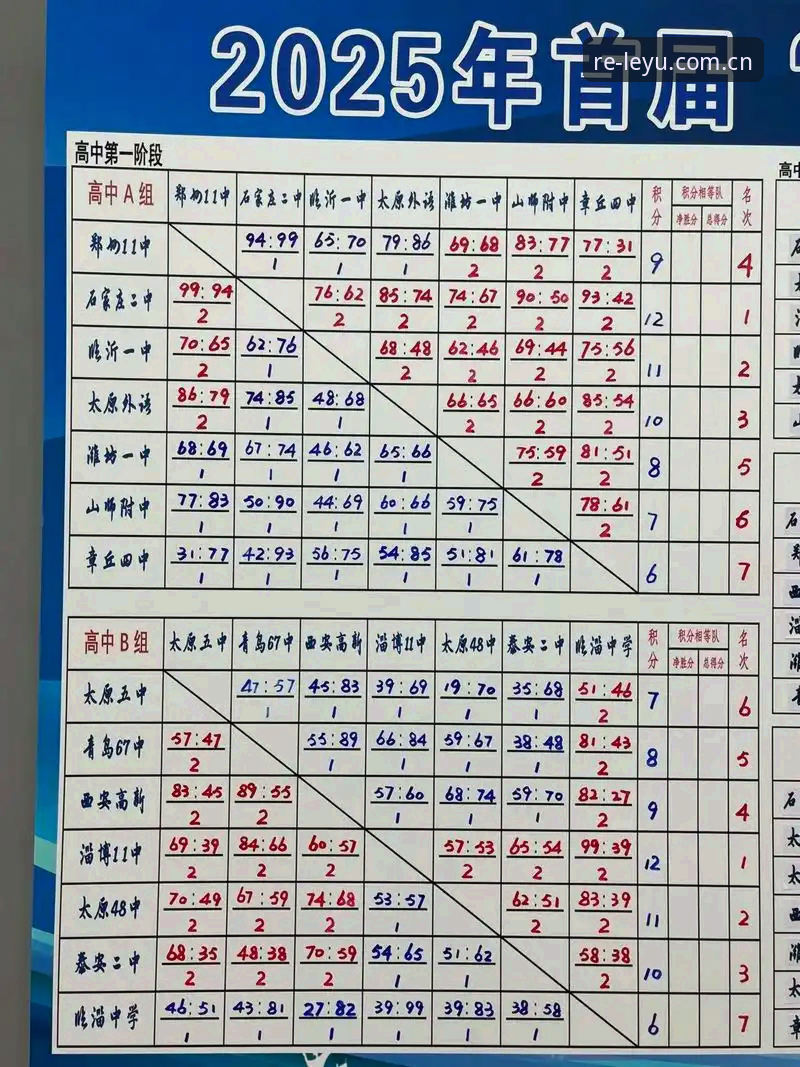 2025年首届
re-leyu.com.cn
高中第一阶段
高中A组 郑州11中 石家庄二中 临沂一中 太原外语 潍坊一中 山师附中 章丘四中 积分 积分相等队 净胜分 总得分 名次
郑州11中 94:99 1 65:70 1 79:86 1 69:68 2 83:77 2 77:31 2 9 4
石家庄二中 99:94 2 76:62 2 85:74 2 74:67 2 90:50 2 93:42 2 12 1
临沂一中 70:65 2 62:76 1 68:48 2 62:46 2 69:44 2 75:56 2 11 2
太原外语 86:79 2 74:85 1 48:68 1 66:65 2 66:60 2 85:54 2 10 3
潍坊一中 68:69 1 67:74 1 46:62 1 65:66 1 75:59 2 81:51 2 8 5
山师附中 77:83 1 50:90 1 44:69 1 60:66 1 59:75 1 78:61 2 7 6
章丘四中 31:77 1 42:93 1 56:75 1 54:85 1 51:81 1 61:78 1 6 7
高中B组 太原五中 青岛67中 西安高新 淄博11中 太原48中 泰安二中 临淄中学 积分 积分相等队 净胜分 总得分 名次
太原五中 47:57 1 45:83 1 39:69 1 19:70 1 35:68 1 51:46 2 7 6
青岛67中 57:47 2 55:89 1 66:84 1 59:67 1 38:48 1 81:43 2 8 5
西安高新 83:45 2 89:55 2 57:60 1 68:74 1 59:70 1 82:27 2 9 4
淄博11中 69:39 2 84:66 2 60:57 2 57:53 2 65:54 2 99:39 2 12 1
太原48中 70:49 2 67:59 2 74:68 2 53:57 1 62:51 2 83:39 2 11 2
泰安二中 68:35 2 48:38 2 70:59 2 54:65 1 51:62 1 58:38 2 10 3
临淄中学 46:51 1 43:81 1 27:82 1 39:99 1 39:83 1 38:58 1 6 7